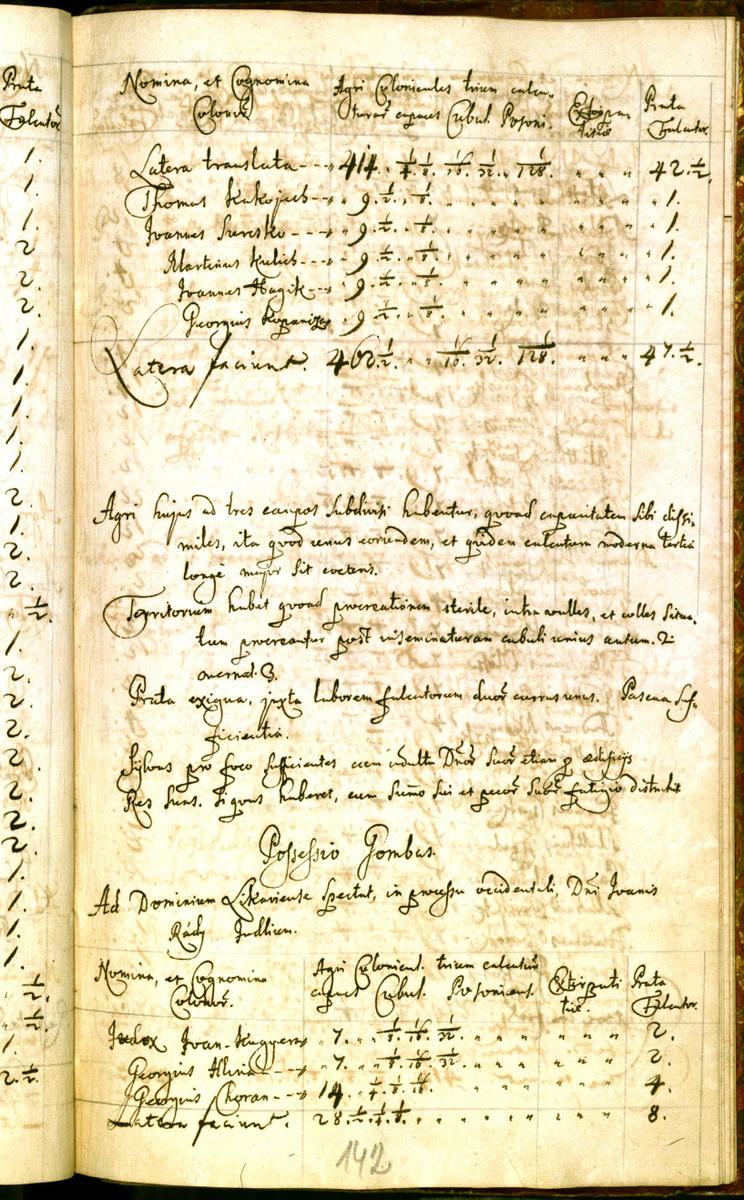 Prata
Falcator.
1.
1.
1.
2
2.
2.
1.
1.
1.
1.
2.
1.
2.
2.
" 1/2.
1.
2.
2.
2.
2.
2.
2.
2.
1.
1.
1.
1.
1/2.
1/2.
1.
2. 1/2.
Nomina, et Cognomina Agri Colonicales trium calca- Prata
Colonor. turar. capaces Cubul. Posoni. Extirpa- Falcator.
titiae
Latera translata --- 414. 1/4. 1/8. 1/16. 1/32. " 1/128. " " " 42. 1/2.
Thomas --- " 9. 1/2. " 1/8. " " " " " " 1.
Joannes --- " 9. 1/2. " 1/8. " " " " " " 1.
Martinus Kulich --- " 9. 1/2. " 1/8. " " " " " " 1.
Joannes Hagik --- " 9. 1/2. " 1/8. " " " " " " 1.
Georgius " 9. 1/2. " 1/8. " " " " " " 1.
Latera faciunt. 462. 1/2. " " 1/16. 1/32. 1/128. " " " 47. 1/2.
Agri hujus ad tres campos subdivisi habentur, quoad capacitatem sibi dissi-
miles, ita quod unus eorundem, et quidem calcatura moderna tertia
longè major sit coeteris.
Territorium habet quoad procreationem sterile, intra valles, et colles situa-
tum procreantur post inseminaturam cubuli unius autum. 2
avernal. 3.
Prata exigua, juxta laborem falcatorum duor. currus unus. Pascua suf-
ficientia.
Sylvas pro foco sufficientes cum indultu Dnor. suor. etiam p aedificijs
Res suas. si quas haberet, cum sumo sui et pecor. suor. fatigio distrahit
Possessio Gombas.
Ad Dominium Likaviense spectat, in processu occidentali, Dni Joanis
Rády Judlium.
Nomina, et Cognomina Agri Colonical. trium calcatur. Extirpati Prata
Colonor. capaces Cubul. Posoniens. tiae. Falcator.
Judex Joan. " 7. " 1/8. 1/16. 1/32. " " " " 2.
Georgius Hlina --- " 7. " 1/8. 1/16. 1/32. " " " " 2.
Georgius Choran --- 14. " 1/4. 1/8. 1/16. " " " " 4.
Latera faciunt. 28. 1/2. 1/4. 1/8. " " " " " " 8.
142